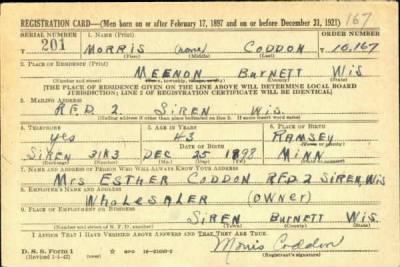 REGISTRATION CARD—(Men born on or after February 17, 1897 and on or before December 31, 1921) 167
SERIAL NUMBER 1. NAME (Print) ORDER NUMBER
201 MORRIS (none) CODDON 10,167
(First) (Middle) (Last)
2. PLACE OF RESIDENCE (Print)
MEENON BURNETT WIS
(Number and street) (Town, township, village, or city) (County) (State)
[THE PLACE OF RESIDENCE GIVEN ON THE LINE ABOVE WILL DETERMINE LOCAL BOARD
JURISDICTION; LINE 2 OF REGISTRATION CERTIFICATE WILL BE IDENTICAL]
3. MAILING ADDRESS
R.F.D. 2. SIREN WIS.
(Mailing address if other than place indicated on line 2. If same insert word same)
4. TELEPHONE 5. AGE IN YEARS 6. PLACE OF BIRTH
yes 43 RAMSEY
DATE OF BIRTH
SIREN 31R3 DEC 25 1898 MINN
7. NAME AND ADDRESS OF PERSON WHO WILL ALWAYS KNOW YOUR ADDRESS
MRS ESTHER CODDON R.F.D. 2 SIREN, WIS
8. EMPLOYER'S NAME AND ADDRESS
WHOLESALER (OWNER)
9. PLACE OF EMPLOYMENT OR BUSINESS
SIREN BURNETT WIS.
(Number and street or R. F. D. number) (Town) (County) (State)
I AFFIRM THAT I HAVE VERIFIED ABOVE ANSWERS AND THAT THEY ARE TRUE.
D. S. S. Form 1
(Revised 1-1-42) Morris Coddon